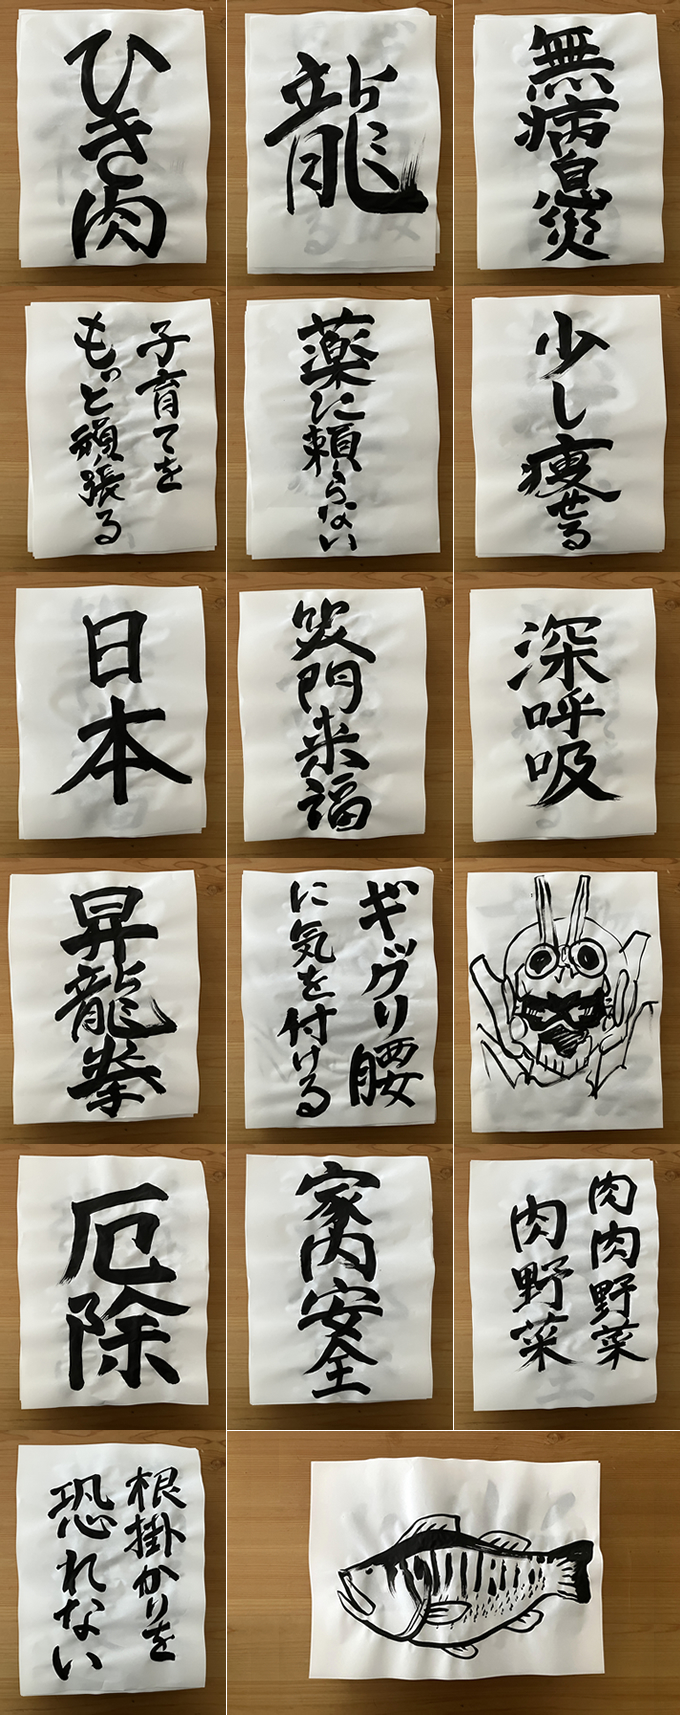 ひき肉
龍
無病息災
子育てを
もっと頑張る
薬に頼らない
少し痩せる
日本
笑門来福
深呼吸
昇龍拳
ギックリ腰
に気を付ける
厄除
家内安全
肉肉野菜
肉野菜
根掛かりを
恐れない